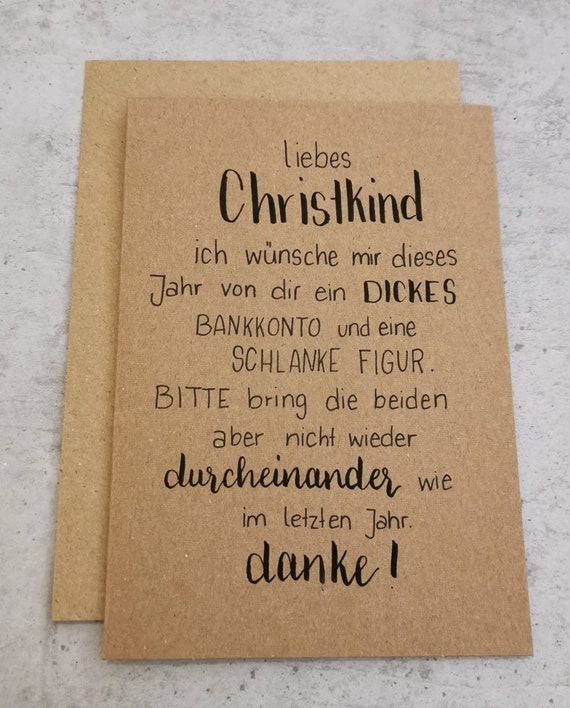 liebes
Christkind
ich wünsche mir dieses
Jahr von dir ein DICKES
BANKKONTO und eine
SCHLANKE FIGUR.
BITTE bring die beiden
aber nicht wieder
durcheinander wie
im letzten Jahr.
danke!